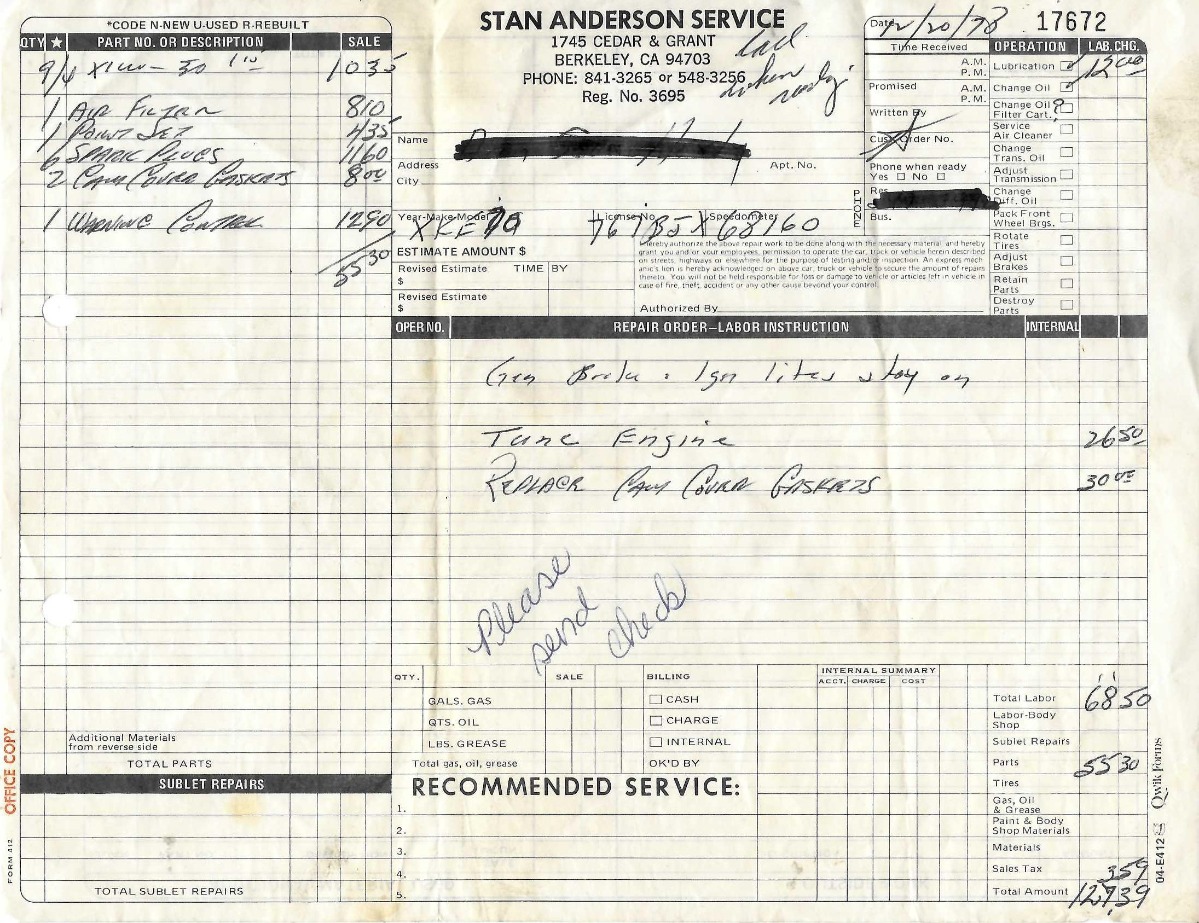 *CODE N-NEW U-USED R-REBUILT
QTY ★ PART NO. OR DESCRIPTION SALE
9/4 30 1035
1 AIR FILTER 810
1 POINT SET 435
6 SPARK PLUGS 1160
2 CAM COVER GASKETS 8 00
1 WARNING CONTROL 1290
55 30
Additional Materials
from reverse side
TOTAL PARTS
SUBLET REPAIRS
TOTAL SUBLET REPAIRS
OFFICE COPY
FORM 412
STAN ANDERSON SERVICE
1745 CEDAR & GRANT
BERKELEY, CA 94703
PHONE: 841-3265 or 548-3256
Reg. No. 3695
Call
when
ready
Name
Address Apt. No.
City
Year-Make-Model License No. Speedometer
XKE 70 761BJX 68760
ESTIMATE AMOUNT $
Revised Estimate TIME BY
$
Revised Estimate
$
I hereby authorize the above repair work to be done along with the necessary material, and hereby
grant you and/or your employees, permission to operate the car, truck or vehicle herein described
on streets, highways or elsewhere for the purpose of testing and/or inspection. An express mech-
anic's lien is hereby acknowledged on above car, truck or vehicle to secure the amount of repairs
thereto. You will not be held responsible for loss or damage to vehicle or articles left in vehicle in
case of fire, theft, accident or any other cause beyond your control.
Authorized By
Date 2/20/78 17672
Time Received
A.M.
P.M.
Promised A.M.
P.M.
Written By
Cust. Order No.
Phone when ready
Yes No
PHONE
Res.
Bus.
OPERATION LAB. CHG.
Lubrication 12 00
Change Oil
Change Oil ?
Filter Cart.
Service
Air Cleaner
Change
Trans. Oil
Adjust
Transmission
Change
Diff. Oil
Pack Front
Wheel Brgs.
Rotate
Tires
Adjust
Brakes
Retain
Parts
Destroy
Parts
OPER NO. REPAIR ORDER—LABOR INSTRUCTION INTERNAL
Ign lites stay on
Tune Engine 26 50
REPLACE CAM COVER GASKETS 30 00
Please
send
check
QTY. SALE BILLING
GALS. GAS CASH
QTS. OIL CHARGE
LBS. GREASE INTERNAL
Total gas, oil, grease OK'D BY
INTERNAL SUMMARY
ACCT. CHARGE COST
RECOMMENDED SERVICE:
1.
2.
3.
4.
5.
Total Labor 68 50
Labor-Body
Shop
Sublet Repairs
Parts 55 30
Tires
Gas, Oil
& Grease
Paint & Body
Shop Materials
Materials
Sales Tax 359
Total Amount 127 39
04-E412 Qwik Forms